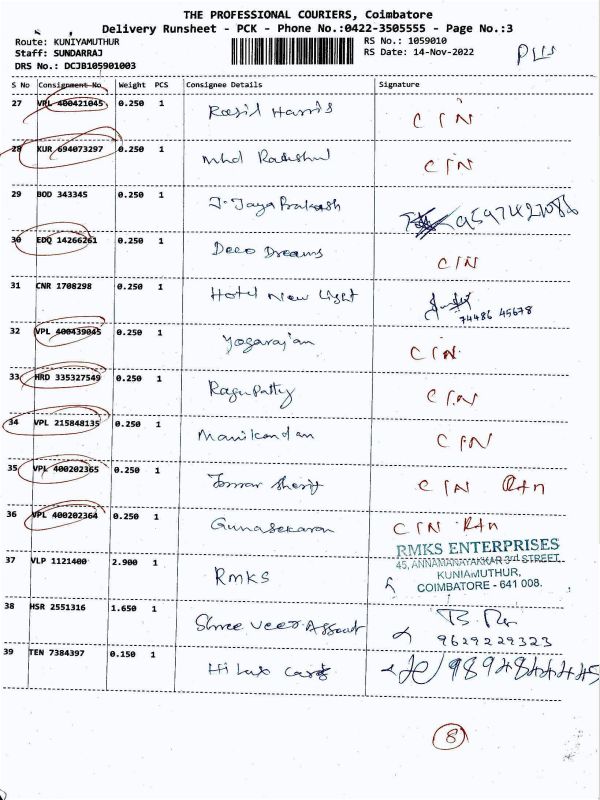 THE PROFESSIONAL COURIERS, Coimbatore
Delivery Runsheet - PCK - Phone No.:0422-3505555 - Page No.:3
Route: KUNIYAMUTHUR RS No.: 1059010
Staff: SUNDARRAJ RS Date: 14-Nov-2022
DRS No.: DCJB105901003
S No Consignment No. Weight PCS Consignee Details Signature
27 VPL 400421045 0.250 1 Rasil Harris C I N
28 KUR 694073297 0.250 1 Mhd CIN
29 BOD 343345 0.250 1 J. Jaya Prakash
30 EDQ 14266261 0.250 1 Deco Dreams C I N
31 CNR 1708298 0.250 1 Hotel New Light
74486 45678
32 VPL 400439045 0.250 1 Yogarajan C I N
33 HRD 335327549 0.250 1 Ragupathy C I N
34 VPL 215848135 0.250 1 Manikandan C I N
35 VPL 400202365 0.250 1 Sherif C I N
36 VPL 400202364 0.250 1 Gunasekaran C I N
RMKS ENTERPRISES
45, ANNAMANAYAKKAR 3rd STREET,
KUNIAMUTHUR,
COIMBATORE - 641 008.
37 VLP 1121400 2.900 1 RMKS
38 HSR 2551316 1.650 1 Shree Veer
9629229323
39 TEN 7384397 0.150 1 Hi Lab
8